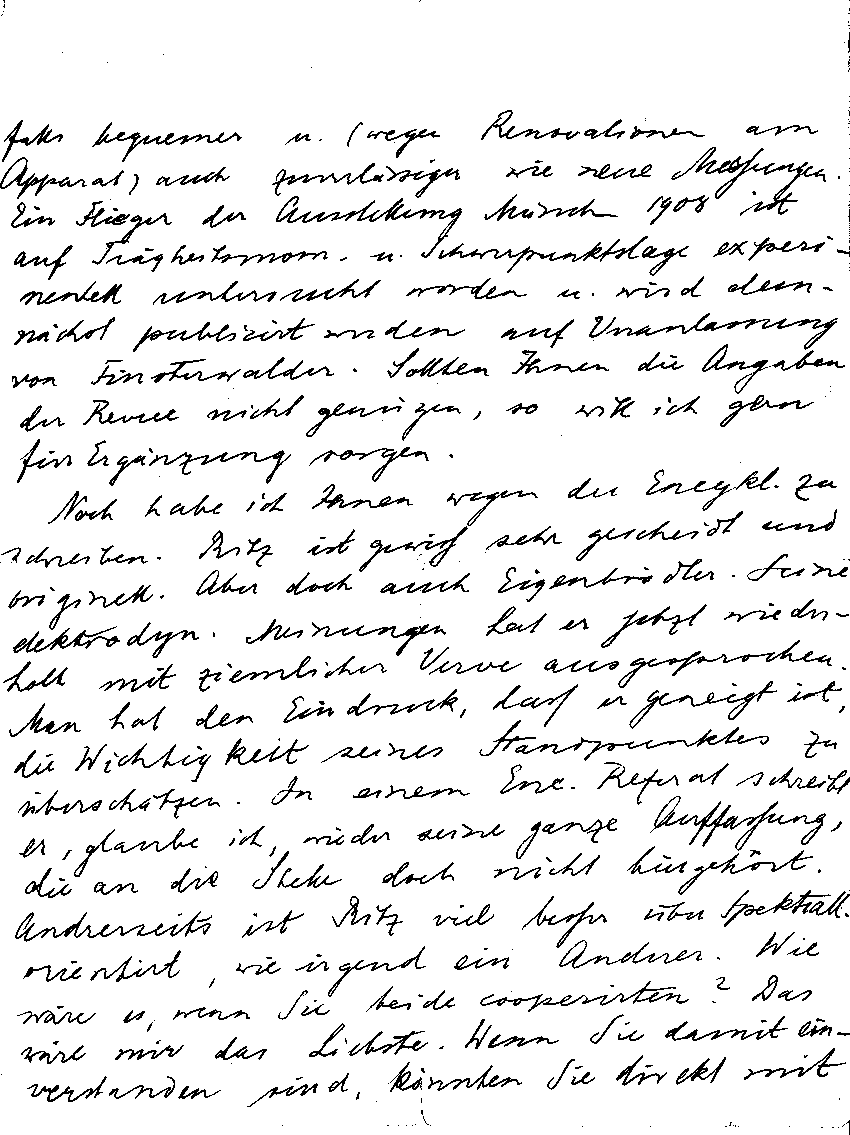 falls bequemer u. (wegen Renovationen am
Apparat) auch zuverlässiger wie neue Messungen.
Ein Flieger der Ausstellung Münch 1908 ist
auf Trägheitsmom. u. Schwerpunktslage experi-
mentell untersucht worden u. wird dem-
nächst publicirt werden auf Veranlassung
von Finsterwalder. Sollten Ihnen die Angaben
der Revue nicht genügen, so will ich gern
für Ergänzung sorgen.
Noch habe ich Ihnen wegen der Encykl. zu
schreiben. Ritz ist gewiß sehr gescheidt und
originell. Aber doch auch Eigenbrödler. Seine
elektrodyn. Meinungen hat er jetzt wieder-
holt mit ziemlicher Verve ausgesprochen.
Man hat den Eindruck, daß er geneigt ist,
die Wichtigkeit seines Standpunktes zu
überschätzen. In einem Enc. Referat schreibt
er, glaube ich, wieder seine ganze Auffassung,
die an die Stelle doch nicht hingehört.
Andrerseits ist Ritz viel besser über Spektrall.
orientirt, wie irgend ein Anderer. Wie
wäre es, wenn Sie beide cooperirten? Das
wäre mir das Liebste. Wenn Sie damit ein-
verstanden sind, könnten Sie direkt mit